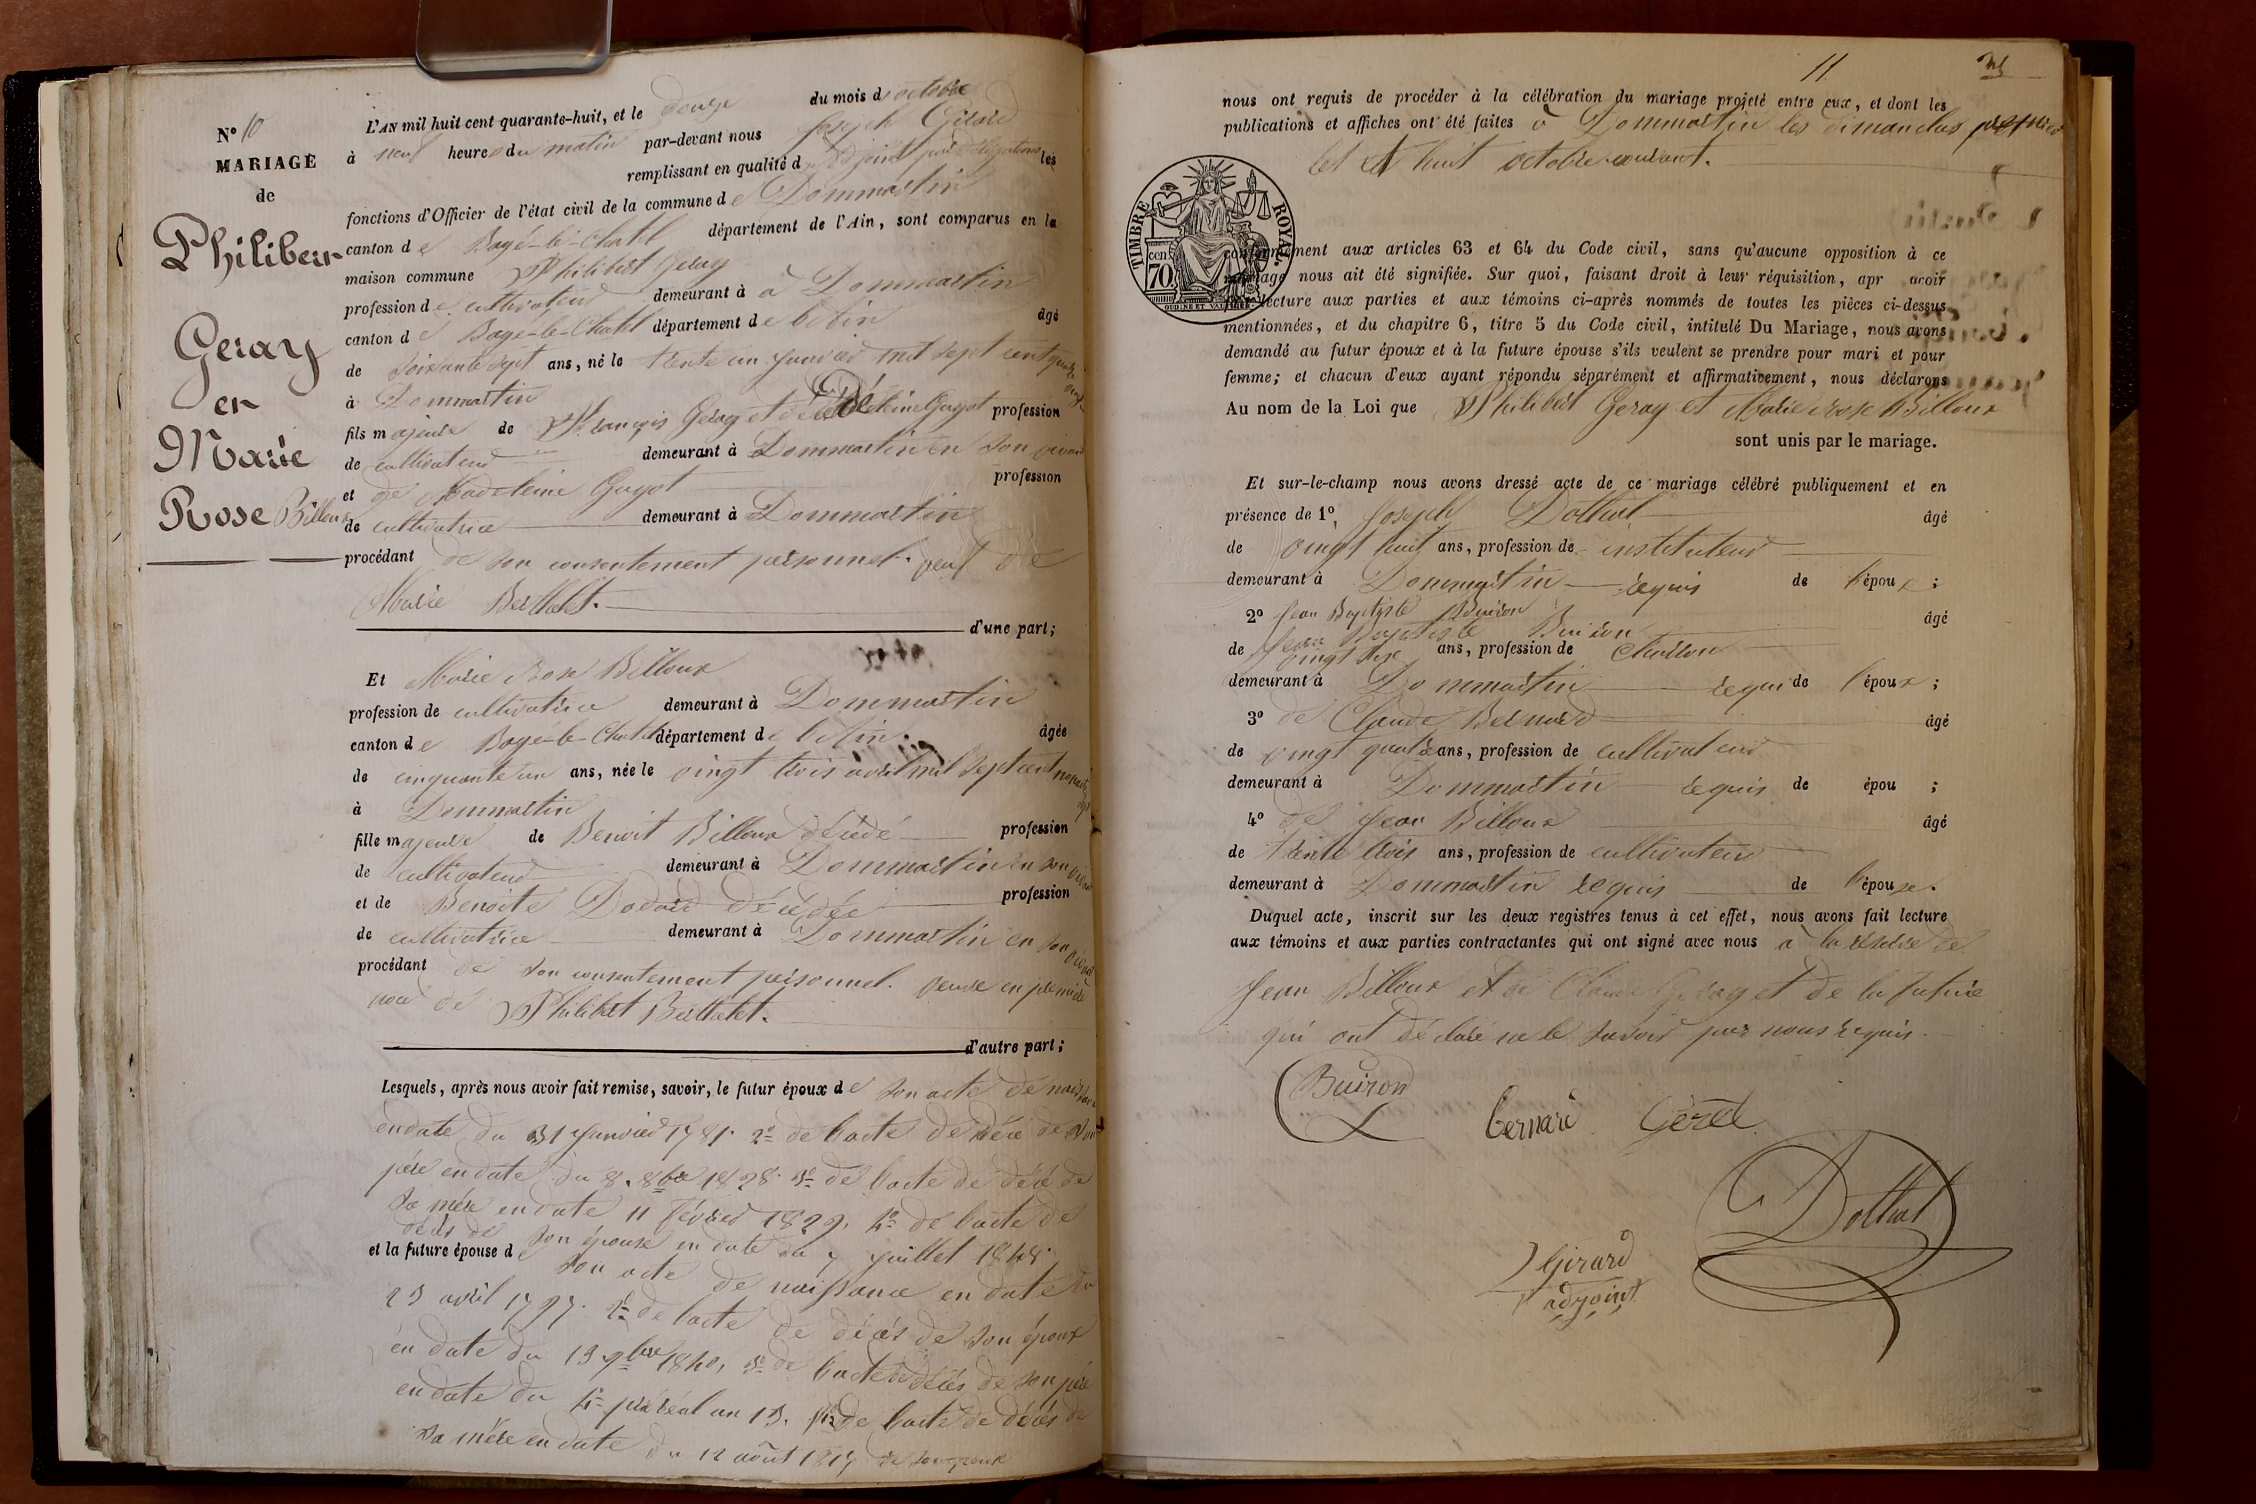 N° 10
MARIAGE
de
Philibert
Geray
et
Marie
Rose Billoux
L'AN mil huit cent quarante-huit, et le douze du mois d'octobre
à neuf heures du matin par-devant nous Joseph Girard
remplissant en qualité d'adjoint par délégation les
fonctions d'Officier de l'état civil de la commune de Dommartin
canton de Bagé-le-Chatel département de l'Ain, sont comparus en la
maison commune Philibert Geray
profession de cultivateur demeurant à à Dommartin
canton de Bagé-le-Chatel département de l'Ain âgé
de soixante sept ans, né le trente un janvier mil sept cent quatre vingt un
à Dommartin
fils majeur de François Geray et de Madeleine Guyot profession
de cultivateur demeurant à Dommartin en son vivant
et de Madeleine Guyot profession
de cultivatrice demeurant à Dommartin
procédant de son consentement personnel. veuf de
Marie Berthelet.
d'une part;
Et Marie Rose Billoux
profession de cultivatrice demeurant à Dommartin
canton de Bagé-le-Chatel département de l'Ain. âgée
de cinquante un ans, née le vingt trois avril mil sept cent nonante sept
à Dommartin
fille majeure de Benoit Billoux décédé profession
de cultivateur demeurant à Dommartin en son vivant
et de Benoite Dodard décédée profession
de cultivatrice demeurant à Dommartin en son vivant
procédant de son consentement personnel. veuve en première
noce de Philibert Berthelet.
d'autre part;
Lesquels, après nous avoir fait remise, savoir, le futur époux de son acte de naissance
en date du 31 janvier 1781. 2° de l'acte de décè de son
père en date du 8. 8bre 1828. 3° de l'acte de décè de
sa mère en date 11 février 1829. 4° de l'acte de
décès de son épouse en date du 7 juillet 1848.
et la future épouse de son acte de naissance en date du
23 avril 1797. 2° de l'acte de décès de son époux
en date du 13 9bre 1840, 3° de l'acte de décès de son père
en date du 4 prairéal an 13. 4° de l'acte de décès de
sa mère en date du 12 août 1819 de son époux
11
nous ont requis de procéder à la célébration du mariage projeté entre eux, et dont les
publications et affiches ont été faites à Dommartin les dimanches premier
et huit octobre courant.
TIMBRE ROYAL
70 cen
conformément aux articles 63 et 64 du Code civil, sans qu'aucune opposition à ce
mariage nous ait été signifiée. Sur quoi, faisant droit à leur réquisition, apr avoir
lecture aux parties et aux témoins ci-après nommés de toutes les pièces ci-dessus
mentionnées, et du chapitre 6, titre 5 du Code civil, intitulé Du Mariage, nous avons
demandé au futur époux et à la future épouse s'ils veulent se prendre pour mari et pour
femme; et chacun d'eux ayant répondu séparément et affirmativement, nous déclarons
Au nom de la Loi que Philibert Geray et Marie Rose Billoux
sont unis par le mariage.
Et sur-le-champ nous avons dressé acte de ce mariage célébré publiquement et en
présence de 1°, Joseph Dolthat âgé
de vingt huit ans, profession de instituteur
demeurant à Dommartin requis de l'époux;
2° Jean Baptiste Buiron âgé
Jean Baptiste Buiron
de vingt six ans, profession de charron
demeurant à Dommartin requi de l'époux;
3° de Claude Bernard âgé
de vingt quatre ans, profession de cultivateur
demeurant à Dommartin requis de épou ;
4° de Jean Billoux âgé
de trente trois ans, profession de cultivateur
demeurant à Dommartin requis de l'épouse.
Duquel acte, inscrit sur les deux registres tenus à cet effet, nous avons fait lecture
aux témoins et aux parties contractantes qui ont signé avec nous à la réserve de
Jean Billoux et de Claude Geray et de la future
qui ont déclaré ne le savoir par nous requis.
Buiron
bernard Gérct
Dolthat
Girard
adjoint